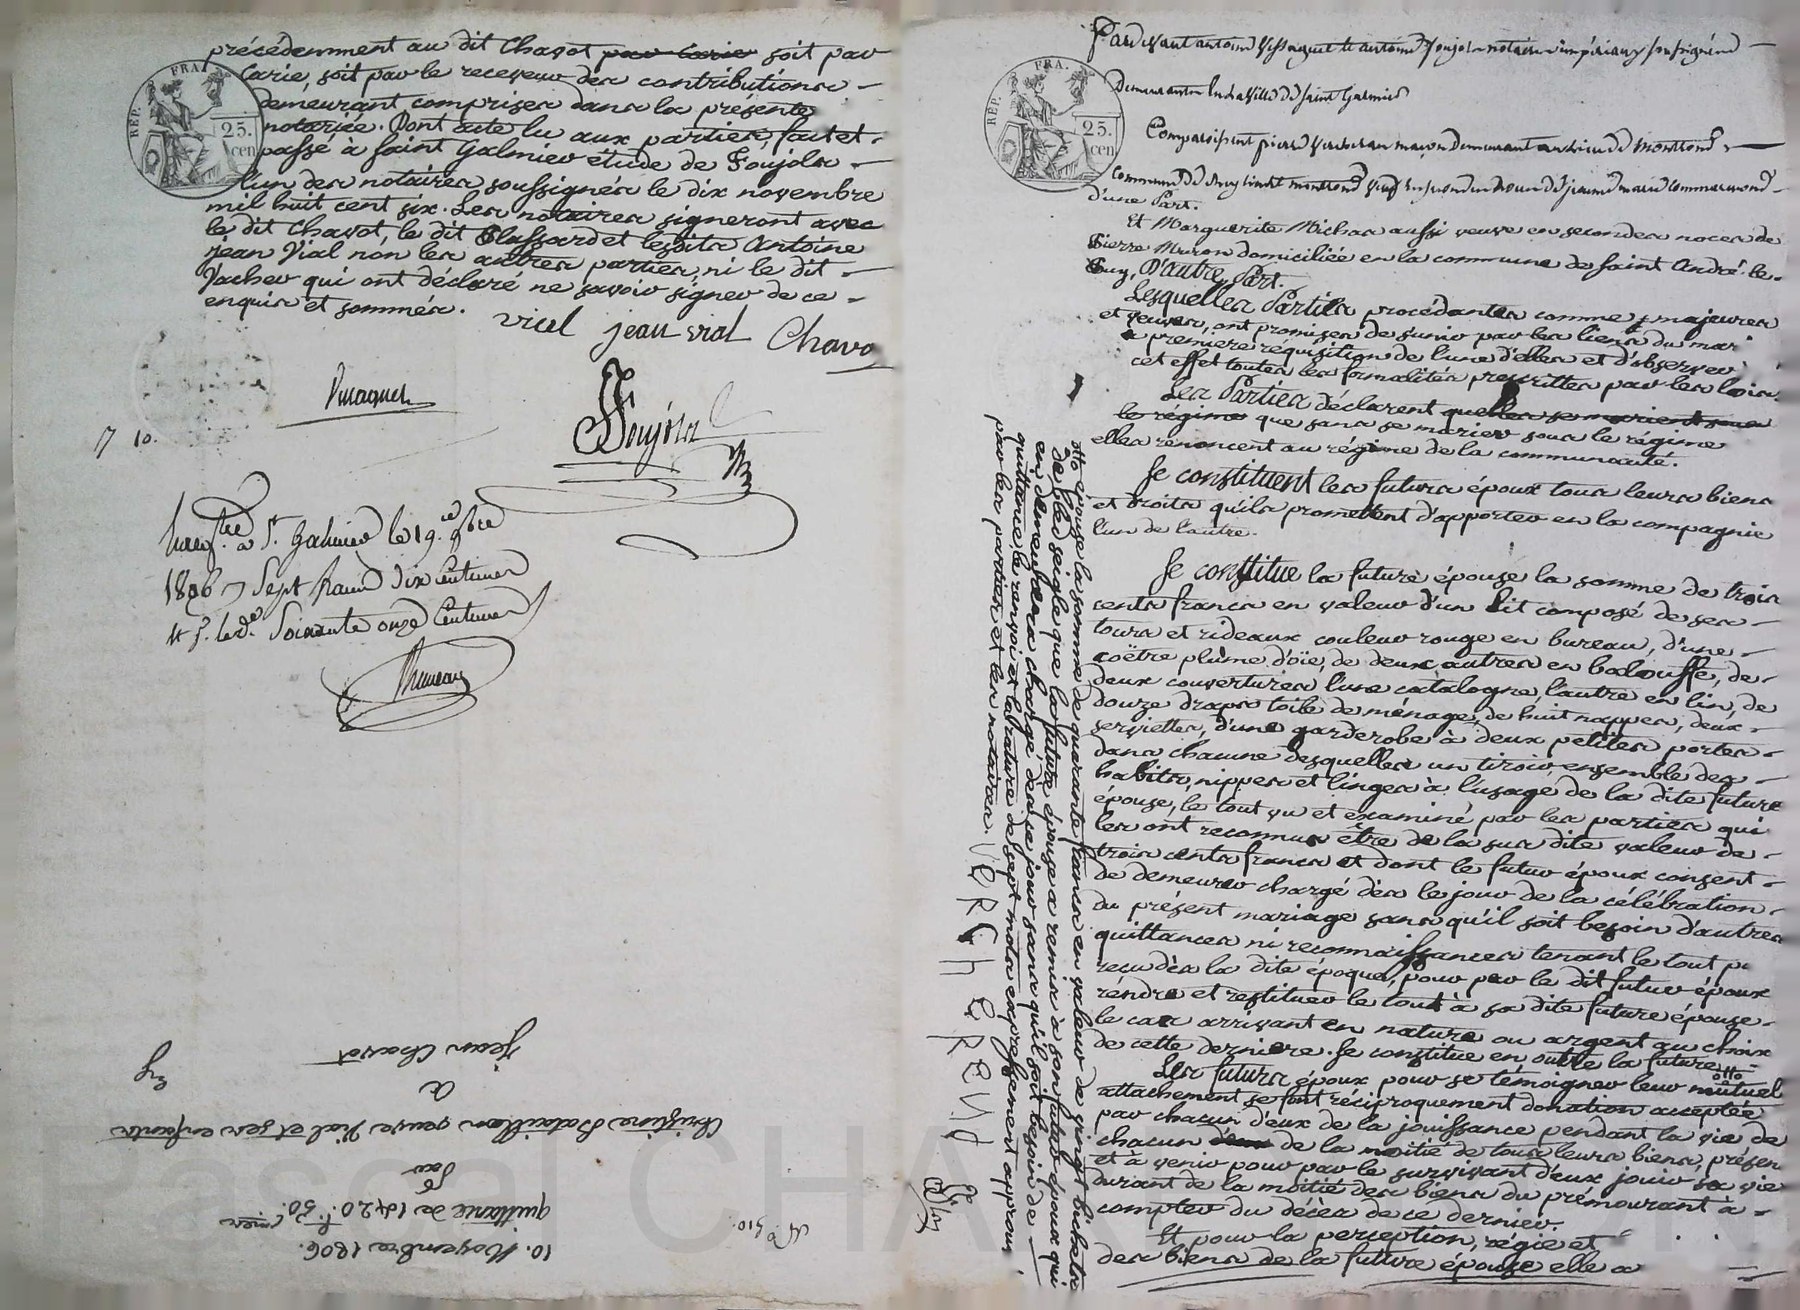 précédemment au dit Chavot par Carie soit par
Carie, soit par le receveur des contributions
demeurant comprises dans la présente
notariée. Dont acte lu aux parties, fait et
passé à Saint Galmier étude de Foujols
l'un des notaires soussignés le dix novembre
mil huit cent six. Les notaires signeront avec
le dit Chavot, le dit Blassard et lesdits Antoine
jean Vial non les autres parties, ni le dit
Vacher qui ont déclaré ne savoir signer de ce
enquis et sommés.
RÉP. FRA.
25.
cen
vial jean vial Chavo
Foujols
17 10.
a St. Galmier le 19. 9bre
1806 Sept francs dix Centimes
Soixante onze Centimes
10. Novembre 1806.
quittance de 1420.f 50.c
Par
Christine Bataillon veuve Vial et ses enfants
A
Jean Chavot
No 510.
Pardevant antoine Vissaguet et antoine foujols notaires impériaux soussignés
Demeurants en la ville de Saint Galmier
RÉP. FRA.
25.
cen
Comparaissent pierre Vercherand maçon Demeurant au lieu de Montrond
Commune de Montrond veuf en secondes noces de jeanne marie
d'une Part.
Et Marguerite Michas aussi veuve en secondes noces de
Pierre Muron domiciliée en la commune de Saint André-le-
Puy, D'autre Part.
Lesquelles Parties procédantes comme majeures
et veuves, ont promises de s'unir par les liens du mari
a premiere réquisition de l'une d'elles et d'observer
cet effet toutes les formalités prescrittes par les loix.
Les Parties déclarent quelles se marient sous
le régime que sans se marier sous le régime
elles rénoncent au régime de la communauté.
Se constituent les futurs époux tous leurs biens
et droits qu'ils promettent d'apporter en la compagnie
l'un de l'autre.
Se constitue la future épouse la somme de trois
cents francs en valeur d'un lit composé de ses
tours et rideaux couleur rouge en bureau, d'une
coëtre plume d'oïe, de deux autres en balouffe, de
deux couvertures l'une catalogne, l'autre en lin, de
douze draps toile de ménage, de huit nappes, deux
serviettes, d'une garderobe à deux petites portes
dans chacune desquelles un tiroir, ensemble des
habits, nippes et linges à l'usage de la dite future
épouse, le tout vu et éxaminé par les parties qui
les ont reconnus être de la sus dite valeur de
trois cents francs et dont le futur époux consent
de demeurer chargé dès le jour de la célébration
du présent mariage sans qu'il soit besoin d'autres
quittances ni reconnaissances tenant le tout p
recu dès la dite époque, pour par le dit futur époux
réndre et restituer le tout à sa dite future épouse
le cas arrivant en nature ou argent au choix
de cette derniere. Se constitue en outre la future
Les futurs époux pour se témoigner leur mutuel
attachement se font réciproquement donation acceptée
par chacun d'eux de la jouissance pendant la vie de
chacun d'eux de la moitié de tous leurs biens, présen
et à venir pour par le survivant d'eux jouir sa vie
durant de la moitié des biens du prémourant à
compter du décès de ce dernier.
Et pour la perception, régie et
des biens de la future épouse elle a
otto épouse la somme de quarante francs en valeur de vingt bichets
de blé seigle que la future épouse a remis à son futur époux qui
en demeurera chargé dès ce jour sans qu'il soit besoin de
quittance le renvoi et la rature de sept mots expressément approuv
par les parties et les notaires. VERCHERAND
Pascal CHAMBON